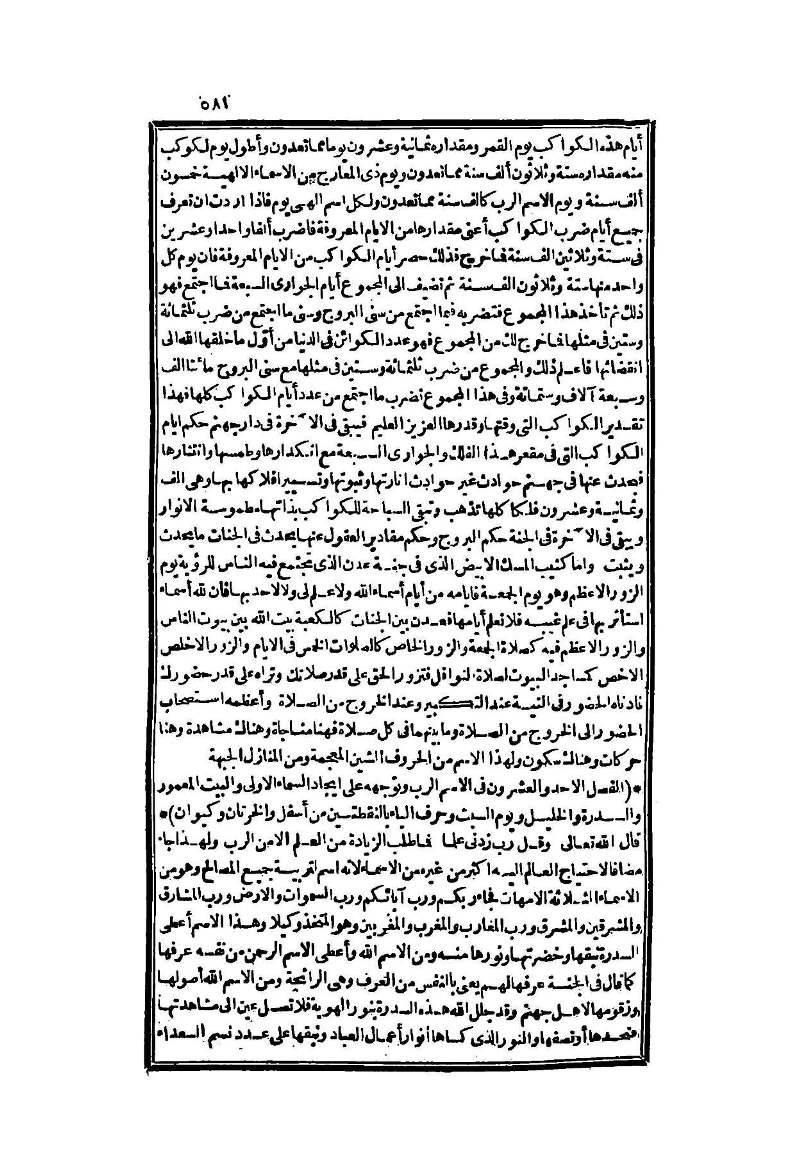 ٥٨١
أيام هذه الكواكب يوم القمر ومقداره ثمانية وعشرون يوما مما تعدون وأطول يوم لكوكب
منه مقداره ستة وثلاثون ألف سنة مما تعدون ويوم ذى المعارج من الاسماء الالهية خمسون
ألف سنة ويوم الاسم الرب كالف سنة مما تعدون ولكل اسم الهى يوم فاذا اردت ان تعرف
جميع أيام ضرب الكواكب أعنى مقدارها من الايام المعروفة فاضرب ألفا واحدا وعشرين
فى ستة وثلاثين الف سنة فما خرج فذلك حصر أيام الكواكب من الايام المعروفة فان يوم كل
واحد منها ستة وثلاثون الف سنة ثم تضيف الى المجموع أيام الجوارى السبعة فما اجتمع فهو
ذلك ثم تأخذ هذا المجموع فتضربه فيما اجتمع من سنى البروج وسنى ما اجتمع من ضرب ثلثمائة
وستين فى مثلها فما خرج لك من المجموع فهو عدد الكوائن فى الدنيا من أول ما خلقها الله الى
انقضائها فاعلم ذلك والمجموع من ضرب ثلثمائة وستين فى مثلها مع سنى البروج مائتا الف
وسبعة آلاف وستمائة وفى هذا المجموع تضرب ما اجتمع من عدد أيام الكواكب كلها فهذا
تقدير الكواكب التى وقتها وقدرها العزيز العليم فيبقى فى الآخرة فى دار جهنم حكم ايام
الكواكب التى فى مقعر هذا الفلك والجوارى السبعة مع انكدارها وطمسها وانتثارها
فتحدث عنها فى جهنم حوادث غير حوادث انارتها وثبوتها وتسيير افلاكها بها وهى الف
وثمانية وعشرون فلكا كلها تذهب وتبقى السباحة للكواكب بذاتها مطموسة الانوار
ويبقى فى الآخرة فى الجنة حكم البروج وحكم مقادير العقول عنها يحدث فى الجنات ما يحدث
ويثبت واما كثيب المسك الابيض الذى فى جنة عدن الذى تجتمع فيه الناس للرؤية يوم
الزور الاعظم وهو يوم الجمعة فايامه من أيام أسماء الله ولا علم لى ولا لاحد بها فان لله أسماء
استأثر بها فى علم غيبه فلا تعلم أيامها فعدن بين الجنات كالكعبة بيت الله بين بيوت الناس
والزور الاعظم فيه كصلاة الجمعة والزور الخاص كالصلوات الخمس فى الايام والزور الاخلص
الاخص كمساجد البيوت لصلاة النوافل فتزور الحق على قدر صلاتك وتراه على قدر حضورك
فادناه الحضور فى النية عند التكبير وعند الخروج من الصلاة وأعظمه استصحاب
الحضور الى الخروج من الصلاة وما بينهما فى كل صلاة فهنا مناجاة وهناك مشاهدة وهنا
حركات وهنالك سكون ولهذا الاسم من الحروف الشين المعجمة ومن المنازل الجبهة
*(الفصل الاحد والعشرون فى الاسم الرب وتوجهه على ايجاد السماء الاولى والبيت المعمور
والسدرة والخليل ويوم السبت وحرف الياء بالنقطتين من أسفل والخرتان وكيوان)*
قال الله تعالى وقل رب زدنى علما فما طلب الزيادة من العلم الا من الرب ولهذا جاء
مضافا لاحتياج العالم اليه اكثر من غيره من الاسماء لانه اسم لتربية جميع المصالح وهو من
الاسماء الثلاثة الامهات فجاء ربكم ورب آبائكم ورب السموات والارض ورب المشارق
والمشرقين والمشرق ورب المغارب والمغرب والمغربين وهو المتخذ وكيلا وهذا الاسم أعطى
السدرة نبقها وخضرتها ونورها منه ومن الاسم الله وأعطى الاسم الرحمن من نفسه عرفها
كما قال فى الجنة عرفها لهم يعنى بالنفس من العرف وهى الرائحة ومن الاسم الله أصولها
وزقومها لاهل جهنم وقد جلل الله هذه السدرة بنور الهوية فلا تصل عين الى مشاهدتها
فتحدها أو تصفها والنور الذى كساها أنوار أعمال العباد ونبقها على عدد نسم السعداء